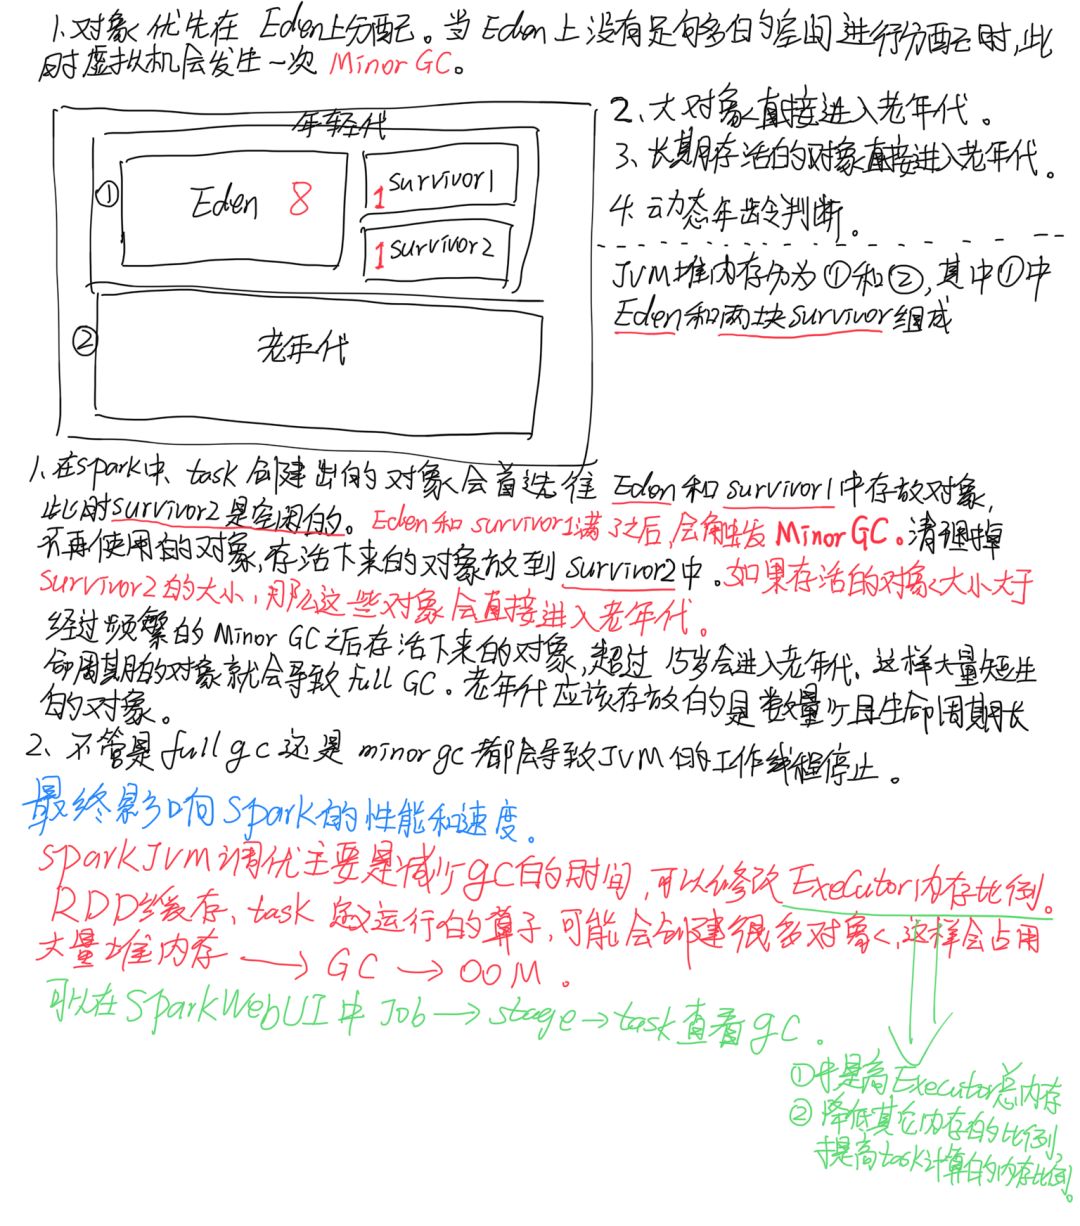 1.对象优先在Eden上分配。当Eden上没有足够多的空间进行分配时,此
时虚拟机会发生一次 Minor GC。
年轻代
① Eden 8
1 survivor1
1 survivor2
② 老年代
2、大对象直接进入老年代。
3、长期存活的对象直接进入老年代。
4、动态年龄判断。
JVM堆内存分为①和②,其中①中
Eden和两块survivor组成
1、在spark中、task创建出的对象会首先往 Eden和survivor1中存放对象,
此时survivor2是空闲的。Eden和survivor1满了之后,会触发MinorGC。清理掉
不再使用的对象,存活下来的对象放到survivor2中。如果存活的对象大小大于
survivor2的大小,那么这些对象会直接进入老年代。
经过频繁的Minor GC之后存活下来的对象,超过15岁会进入老年代,这样大量短生
命周期的对象就会导致full GC。老年代应该存放的是数量少且生命周期长
的对象。
2、不管是full gc还是minor gc都会导致JVM的工作线程停止。
最终影响Spark的性能和速度。
spark JVM调优主要是减少gc的时间,可以修改Executor内存比例。
RDD缓存、task定义运行的算子,可能会创建很多对象,这样会占用
大量堆内存 → GC → OOM。
可以在SparkWebUI中 Job → stage → task查看gc。
①提高Executor总内存
②降低其它内存的比例,
提高task计算的内存比例。